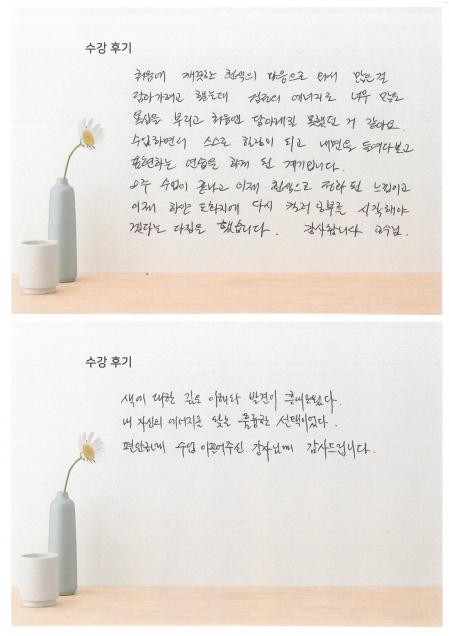 수강 후기
처음에 깨끗한 흰색의 마음으로 와서 많은 걸
담아가려고 했는데 에너지로 너무 많은
욕심을 부리고 처음엔 담아내질 못했던 거 같아요.
수업하면서 스스로 힐링이 되고 내면을 들여다보고
표현하는 연습을 하게 된 계기입니다.
8주 수업이 끝나고 이제 흰색으로 정화 된 느낌이고
이제 하얀 도화지에 다시 컬러 공부를 시작해야
겠다는 다짐을 했습니다. 감사합니다 교수님.
수강 후기
색에 대한 깊은 이해와 발견이 흥미로웠다.
내 자신의 에너지를 찾는 훌륭한 선택이었다.
편안하게 수업 이끌어주신 강사님께 감사드립니다.